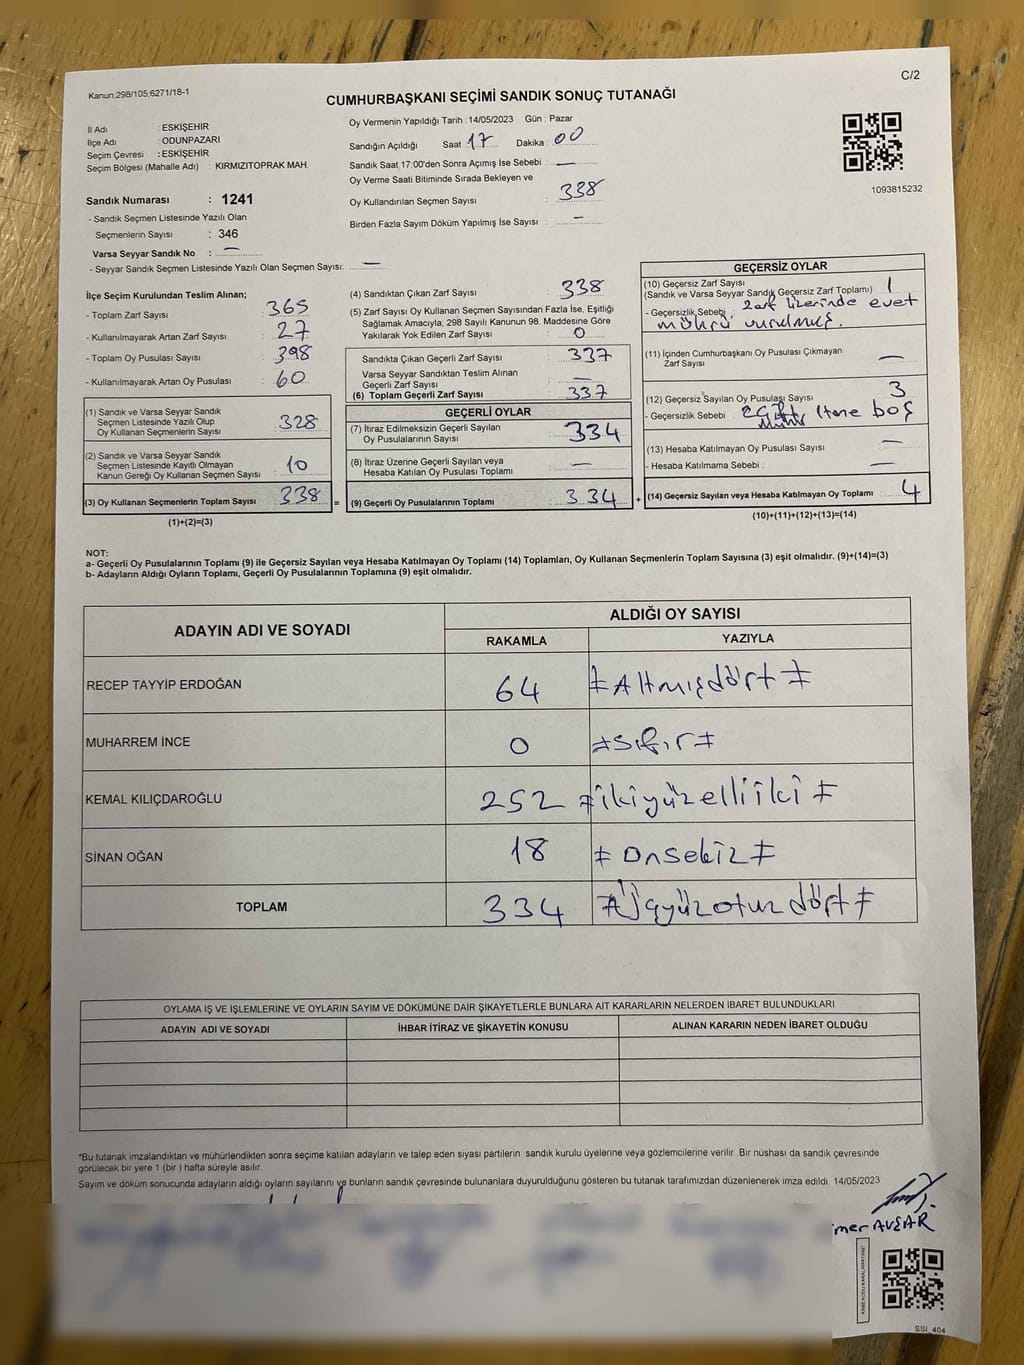 C/2
Kanun,298/105,6271/18-1
CUMHURBAŞKANI SEÇİMİ SANDIK SONUÇ TUTANAĞI
İl Adı : ESKİŞEHİR
İlçe Adı : ODUNPAZARI
Seçim Çevresi : ESKİŞEHİR
Seçim Bölgesi (Mahalle Adı) : KIRMIZITOPRAK MAH.
Sandık Numarası : 1241
- Sandık Seçmen Listesinde Yazılı Olan
Seçmenlerin Sayısı : 346
Varsa Seyyar Sandık No : —
- Seyyar Sandık Seçmen Listesinde Yazılı Olan Seçmen Sayısı: —
Oy Vermenin Yapıldığı Tarih : 14/05/2023 Gün : Pazar
Sandığın Açıldığı Saat 17 Dakika : 00
Sandık Saat 17:00'den Sonra Açımış İse Sebebi : —
Oy Verme Saati Bitiminde Sırada Bekleyen ve
Oy Kullandırılan Seçmen Sayısı : 338
Birden Fazla Sayım Döküm Yapılmış İse Sayısı : —
1093815232
İlçe Seçim Kurulundan Teslim Alınan;
- Toplam Zarf Sayısı : 365
- Kullanılmayarak Artan Zarf Sayısı : 27
- Toplam Oy Pusulası Sayısı : 398
- Kullanılmayarak Artan Oy Pusulası : 60
(1) Sandık ve Varsa Seyyar Sandık
Seçmen Listesinde Yazılı Olup
Oy Kullanan Seçmenlerin Sayısı : 328
(2) Sandık ve Varsa Seyyar Sandık
Seçmen Listesinde Kayıtlı Olmayan
Kanun Gereği Oy Kullanan Seçmen Sayısı : 10
(3) Oy Kullanan Seçmenlerin Toplam Sayısı : 338 =
(1)+(2)=(3)
(4) Sandıktan Çıkan Zarf Sayısı : 338
(5) Zarf Sayısı Oy Kullanan Seçmen Sayısından Fazla İse, Eşitliği
Sağlamak Amacıyla; 298 Sayılı Kanunun 98. Maddesine Göre
Yakılarak Yok Edilen Zarf Sayısı : 0
Sandıkta Çıkan Geçerli Zarf Sayısı : 337
Varsa Seyyar Sandıktan Teslim Alınan
Geçerli Zarf Sayısı : —
(6) Toplam Geçerli Zarf Sayısı : 337
GEÇERLİ OYLAR
(7) İtiraz Edilmeksizin Geçerli Sayılan
Oy Pusulalarının Sayısı : 334
(8) İtiraz Üzerine Geçerli Sayılan veya
Hesaba Katılan Oy Pusulası Toplamı : —
(9) Geçerli Oy Pusulalarının Toplamı : 334 +
GEÇERSİZ OYLAR
(10) Geçersiz Zarf Sayısı
(Sandık ve Varsa Seyyar Sandık Geçersiz Zarf Toplamı) : 1
- Geçersizlik Sebebi : zarf üzerinde evet
mührü vurulmuş.
(11) İçinden Cumhurbaşkanı Oy Pusulası Çıkmayan
Zarf Sayısı : —
(12) Geçersiz Sayılan Oy Pusulası Sayısı : 3
- Geçersizlik Sebebi : 2 çift 1 tane boş
mühür
(13) Hesaba Katılmayan Oy Pusulası Sayısı : —
- Hesaba Katılmama Sebebi : —
(14) Geçersiz Sayılan veya Hesaba Katılmayan Oy Toplamı : 4
(10)+(11)+(12)+(13)=(14)
NOT:
a- Geçerli Oy Pusulalarının Toplamı (9) ile Geçersiz Sayılan veya Hesaba Katılmayan Oy Toplamı (14) Toplamları, Oy Kullanan Seçmenlerin Toplam Sayısına (3) eşit olmalıdır. (9)+(14)=(3)
b- Adayların Aldığı Oyların Toplamı, Geçerli Oy Pusulalarının Toplamına (9) eşit olmalıdır.
ADAYIN ADI VE SOYADI ALDIĞI OY SAYISI
RAKAMLA YAZIYLA
RECEP TAYYİP ERDOĞAN 64 ≠Altmışdört≠
MUHARREM İNCE 0 ≠sıfır≠
KEMAL KILIÇDAROĞLU 252 ≠ikiyüzelliiki≠
SİNAN OĞAN 18 ≠onsekiz≠
TOPLAM 334 ≠Üçyüzotuzdört≠
OYLAMA İŞ VE İŞLEMLERİNE VE OYLARIN SAYIM VE DÖKÜMÜNE DAİR ŞİKAYETLERLE BUNLARA AİT KARARLARIN NELERDEN İBARET BULUNDUKLARI
ADAYIN ADI VE SOYADI İHBAR İTİRAZ VE ŞİKAYETİN KONUSU ALINAN KARARIN NEDEN İBARET OLDUĞU
*Bu tutanak imzalandıktan ve mühürlendikten sonra seçime katılan adayların ve talep eden siyasi partilerin sandık kurulu üyelerine veya gözlemcilerine verilir. Bir nüshası da sandık çevresinde
görülecek bir yere 1 (bir) hafta süreyle asılır.
Sayım ve döküm sonucunda adayların aldığı oyların sayılarını ve bunların sandık çevresinde bulunanlara duyurulduğunu gösteren bu tutanak tarafımızdan düzenlenerek imza edildi. 14/05/2023
mer AVŞAR
SSI_404